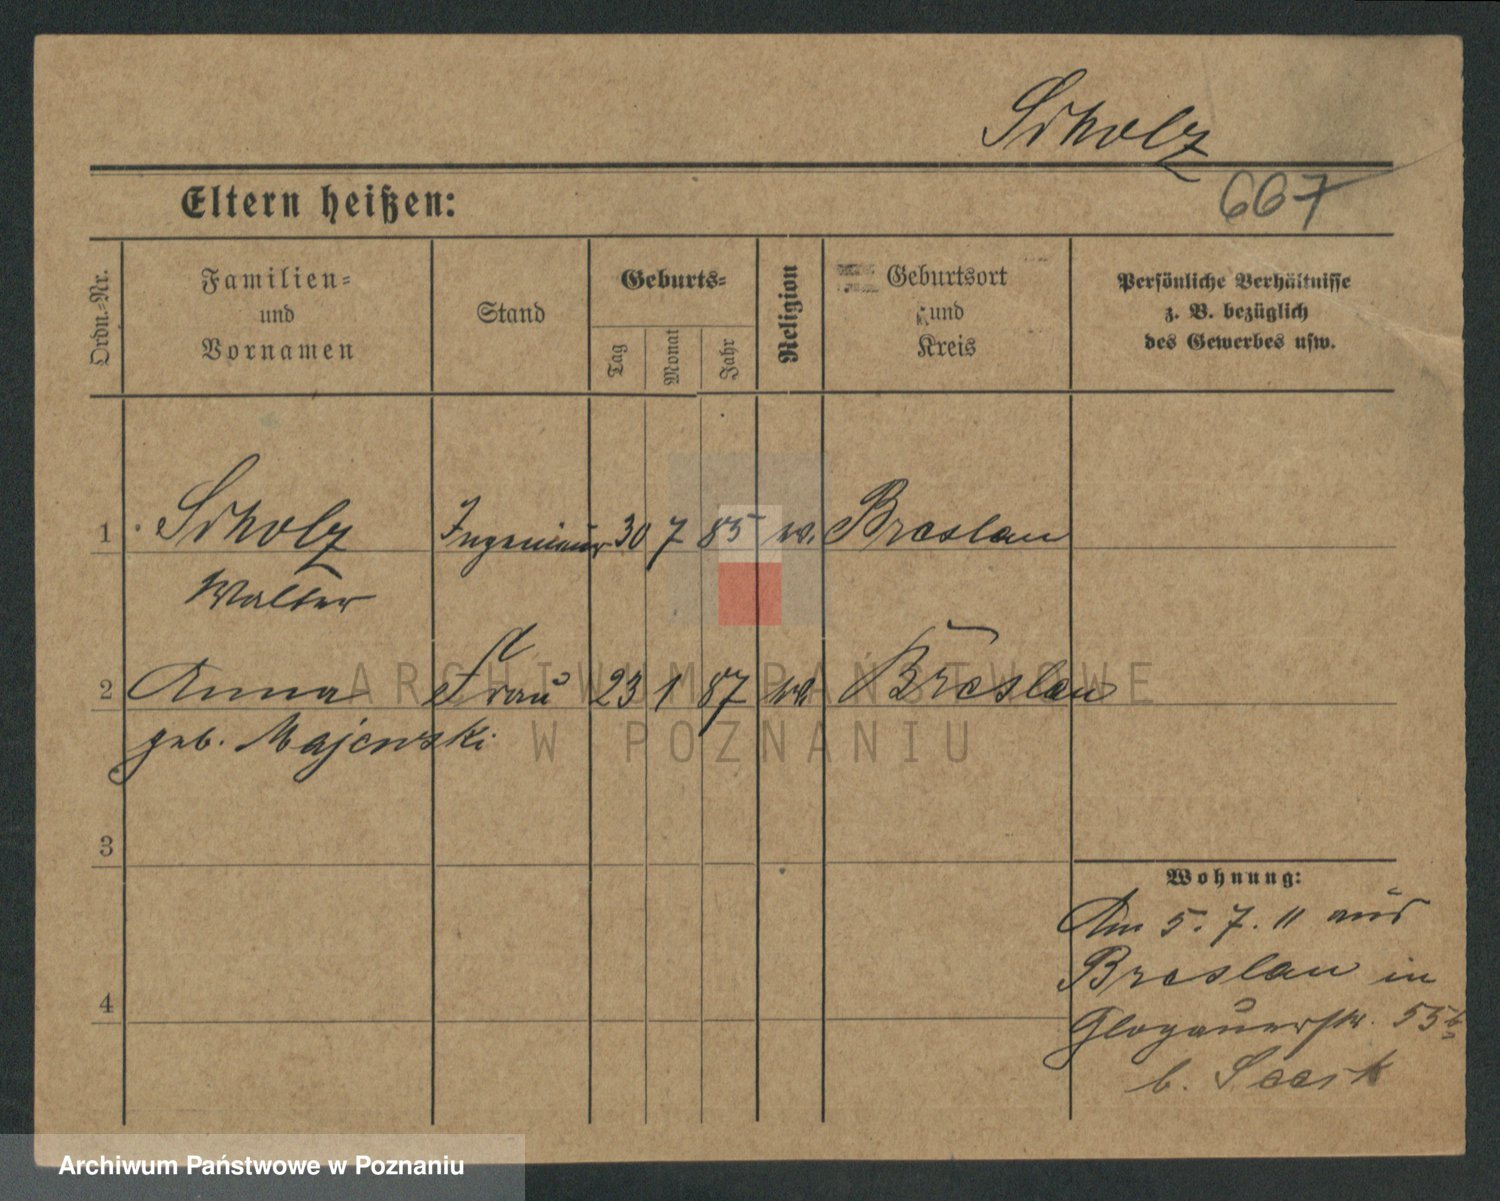 Scholz
Eltern heißen:
667
Ordn.-Nr.
Familien-
und
Vornamen
Stand
Geburts-
Tag
Monat
Jahr
Religion
Geburtsort
und
Kreis
Persönliche Verhältnisse
z. B. bezüglich
des Gewerbes usw.
1 Scholz Ingenieur 30 7 85 Breslau
Walter
2 Anna Frau 23 1 87 Breslau
geb. Majewski
3
4
Wohnung:
Am 5. 7. 11 aus
Breslau in
Glogauerstr. 55
b.
ARCHIWUM PAŃSTWOWE
W POZNANIU
Archiwum Państwowe w Poznaniu